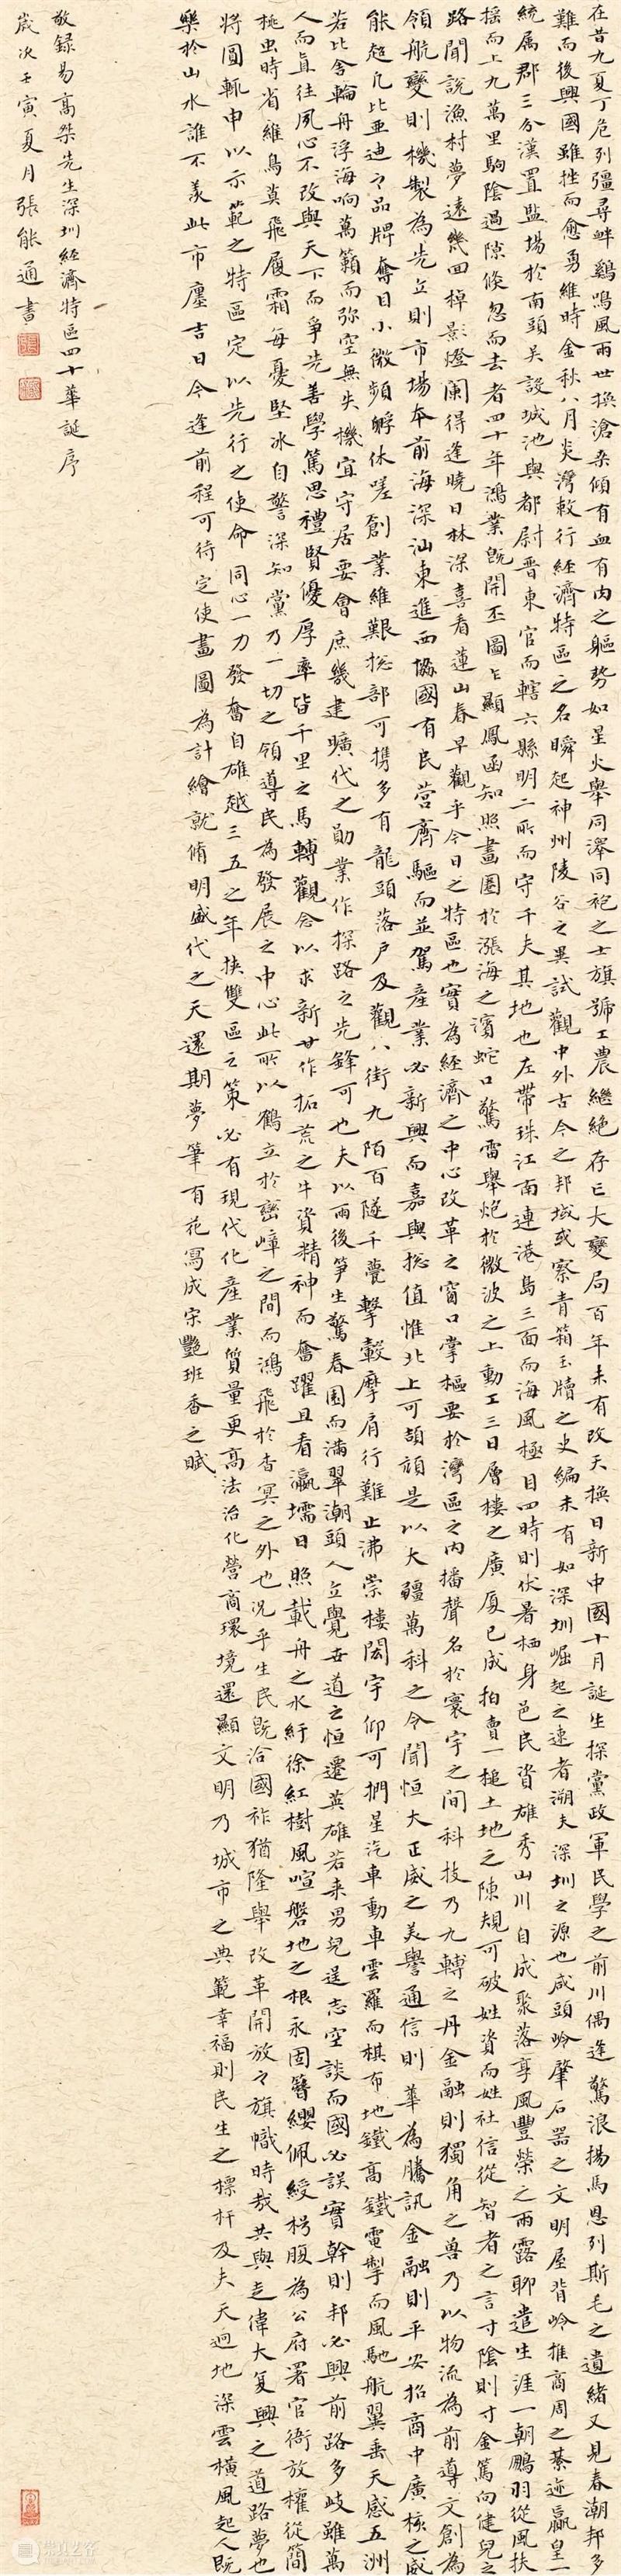 在昔九夏丁危列彊尋衅鷄鳴風雨世換滄桑傾有血有肉之軀勢如星火舉同澤同袍之士旗號工農繼絕存亡大變局百年未有改天換日新中國十月誕生探黨政軍民學之前川偶逢驚浪揚馬恩列斯毛之遺緒又見春潮邦多
難而後興國雖挫而愈勇維時金秋八月炎灣敕行經濟特區之名瞬起神州陵谷之異試觀中外古今之邦域或察青箱玉牘之史編未有如深圳崛起之速者溯夫深圳之源也咸頭岭肇石器之文明屋背岭推商周之綦迹嬴皇一
統属郡三分漢置監場於南頭吴設城池與都尉晋東官而轄六縣明二所而守千夫其地也左帶珠江南連港島三面而海風極目四時則伏暑栖身邑民資雄秀山川自成聚落享風豐榮之雨露聊遣生涯一朝鵬羽從風扶
摇而上九萬里駒陰過隙倏忽而去者四十年鴻業旣開丕圖乍顯鳳函知照畫圈於漲海之濱蛇口驚雷舉炮於微波之上動工三日層樓之廣厦已成拍賣一槌土地之陳規可破姓資而姓社信從智者之言寸陰則寸金篤向健兒之
路聞說漁村夢遠幾回棹影燈闌得逢曉日林深喜看蓮山春早觀乎今日之特區也實為經濟之中心改革之窗口掌樞要於灣區之内播聲名於寰宇之間科技乃九轉之丹金融則獨角之兽乃以物流為前導文創為
領航變則機製為先立則市場本前海深汕東進西協國有民營齊驅而並駕産業必新興而嘉與總值惟北上可頡頏是以大疆萬科之令聞恒大正威之美譽通信則華為騰訊金融則平安招商中廣核之威
能超凡比亚迪之品牌奪目小微頻孵休嗟創業維艱總部可携多有龍頭落户及觀八街九陌百隧千甍擊轂摩肩行難止沸崇樓閎宇仰可捫星汽車動車雲羅而棋布地鐵高鐵電掣而風馳航翼垂天感五洲
若比舍輪舟浮海响萬籟而弥空無失機宜守居要會庶幾建曠代之勛業作探路之先鋒可也夫以雨後笋生驚春園而滿翠潮頭人立覺世道之恒遷英雄若来男兒逞志空談而國必誤實幹則邦必興前路多歧雖萬
人而直往夙心不改與天下而争先善學篤思禮賢優厚率皆千里之馬轉觀念以求新甘作拓荒之牛資精神而奮躍且看瀛壖日照載舟之水紆徐紅樹風喧磐地之根永固簪纓佩綬枵腹為公府署官衙放權從簡
桃虫時省維鳥莫飛履霜每憂堅冰自警深知黨乃一切之領導民為發展之中心此所以鶴立於巒嶂之間而鴻飛於杳冥之外也况乎生民既洽國祚猶隆舉改革開放之旗幟時哉共與走偉大复興之道路夢也
將圓輒申以示範之特區定以先行之使命同心一力發奮自雄越三五之年挟雙區之策必有現代化産業質量更高法治化營商環境還顯文明乃城市之典範幸福則民生之標杆及夫天迥地深雲橫風起人旣
樂於山水誰不羨此市廛吉日今逢前程可待定使畫圖為計繪就脩明盛代之天還期夢筆有花寫成宋艷班香之賦
敬録易高桀先生深圳經濟特區四十華誕序
歲次壬寅夏月張能通書
崇真艺客